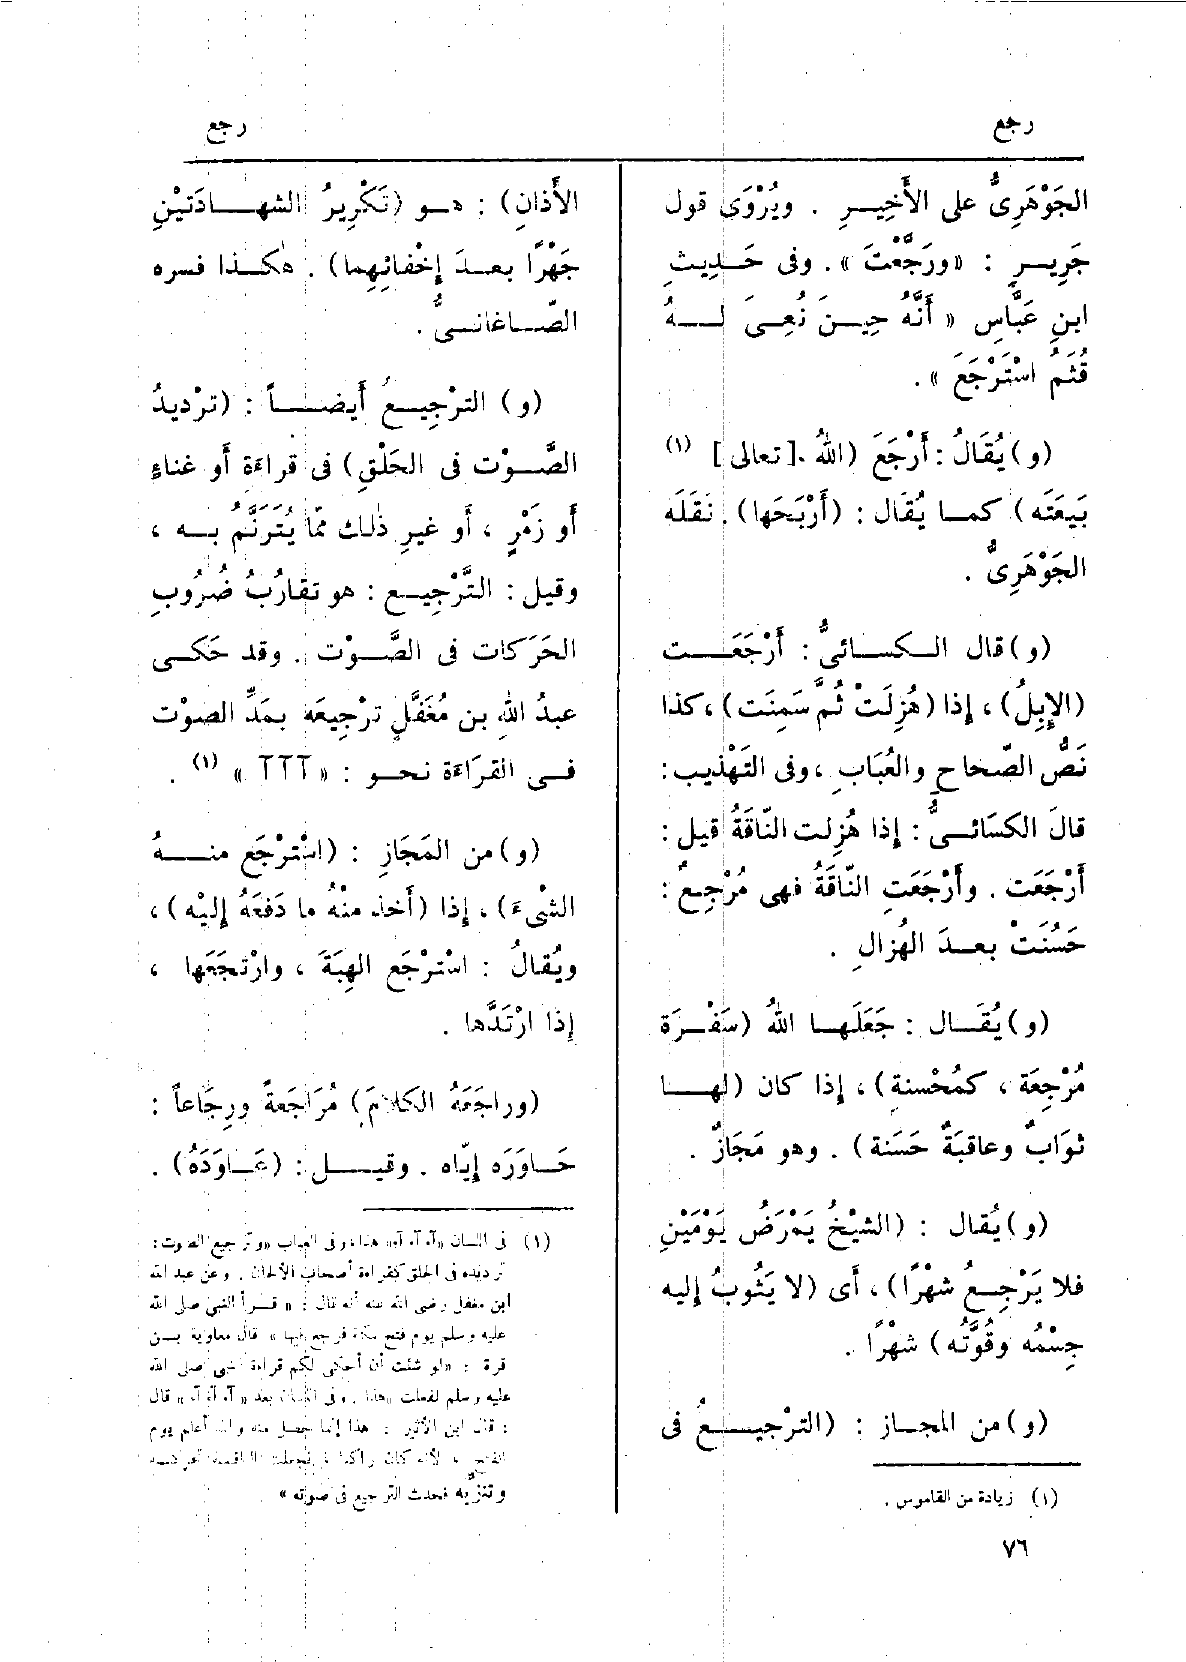 رجع
رجع
الجَوْهَرِىُّ على الأَخِيـرِ . ويُرْوَى قول
جَرِيـرٍ : «ورَجَّعْتَ» . وفى حَـدِيثِ
ابنِ عَبَّاس « أَنَّهُ حِيـنَ نُعِـىَ لـهُ
قُثَمُ اسْتَرْجَعَ » .
(و) يُقَالُ : أَرْجَعَ (اللهُ [تعالى] (١)
بَيعَتَه) كمـا يُقَال : (أَرْبَحَها) . نَقَلَه
الجَوْهَرِىُّ .
(و) قال الـكسـائىُّ : أَرْجَعَـت
(الإِبِلُ) ، إذا (هُزِلَتْ ثُمَّ سَمِنَت) ، كذا
نَصُّ الصّحاحِ والعُبَابِ ، وفى التَهْذِيب :
قالَ الكسَائـىُّ : إذا هُزِلت النّاقَةُ قيل :
أَرْجَعَت . وأَرْجَعَتِ النّاقَةُ فهى مُرْجِعٌ :
حَسُنَتْ بعـدَ الهُزالِ .
(و) يُقَـال : جَعَلَهـا اللهُ (سَفْـرَة
مُرْجِعَة ، كمُحْسنةِ) ، إذا كان (لهـا
ثَوَابٌ وعاقبَةٌ حَسَنة) . وهو مَجَازٌ .
(و) يُقال : (الشيْخُ يَمْرَضُ يَوْمَيْنِ
فلا يَرْجِـعُ شهْرًا) ، أى (لا يَثُوبُ إليه
جِسْمُه وقُوَّتُه) شهْرًا .
(و) من المجـاز : (الترْجِيـعُ فى
(١) زيادة من القاموس .
الأَذانِ) : هـو (تَكْرِيرُ الشهـادَتيْنِ
جَهْرًا بعـدَ إخْفائهِما) . هكـذا فسره
الصّـاغانـىُّ .
(و) الترْجِيـعُ أَيضـاً : (ترْديدُ
الصَّـوْت فى الحَلْقِ) فى قراءَة أو غناءٍ
أو زَمْرٍ ، أو غيرِ ذٰلك ممّا يُتَرَنَّمُ بـه ،
وقيل : التَّرْجِيـع : هو تقارُبُ ضُرُوبِ
الحَرَكات فى الصَّـوْت . وقد حَكـى
عبدُ الله بن مُغَفَّلٍ ترْجيعَه بمَدِّ الصوْت
فـى القرَاءَة نحـو : « آآآ » (١) .
(و) من المَجَازِ : (اسْترْجَع منـهُ
الشىْءَ) ، إذا (أخذ منْهُ ما دَفَعَهُ إليْه) ،
ويُقالُ : اسْترْجَع الهبَةَ ، وارْتجَعَها ،
إذا ارْتَدَّها .
(وراجَعَهُ الكلامَ) مُرَاجَعةً ورِجَاعاً :
حَـاوَرَه إيّاه . وقيـل : (عَـاوَدَهُ) .
(١) فى اللسان «آء آء آء» هذا ، وفى العباب «وترجيع الصوت :
ترديده فى الحلق كقراءة أصحاب الألحان . وعن عبد الله
ابن مغفل رضى الله عنه أنه قال : « قـرأ النبى صلى الله
عليه وسلم يوم فتح مكة فرجع فيها » قال معاوية بـن
قرة : «لو شئت أن أحكى لكم قراءة النبى صلى الله
عليه وسلم لفعلت «هذا . وفى اللسان بعد « آء آء آء » قال
: قال ابن الأثير : هذا إنما حصل منه والله أعلم يوم
الفتح ، لأنه كان راكبا ، فجعلت الناقـة تحركـه
وتنزيه فحدث الترجيع فى صوته »
٧٦